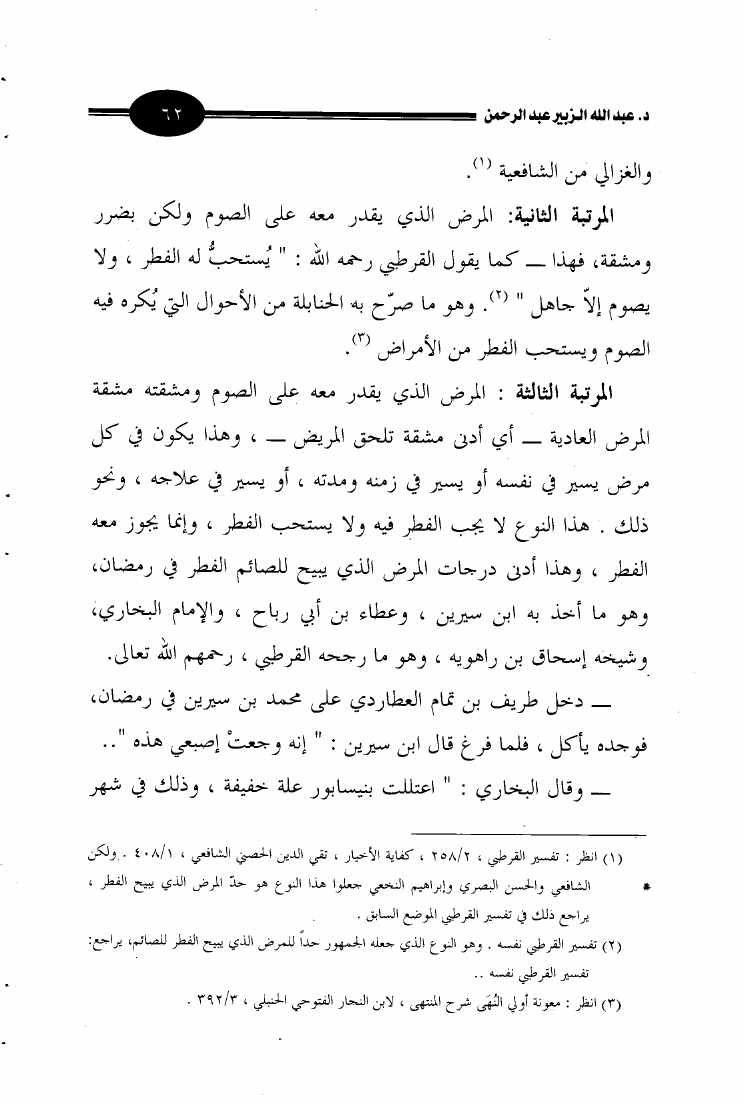 د. عبد الله الزبير عبد الرحمن ٦٢
والغزالي من الشافعية (١).
المرتبة الثانية: المرض الذي يقدر معه على الصوم ولكن بضرر
ومشقة، فهذا — كما يقول القرطبي رحمه الله : " يُستحبُّ له الفطر ، ولا
يصوم إلاّ جاهل " (٢). وهو ما صرّح به الحنابلة من الأحوال التي يُكره فيه
الصوم ويستحب الفطر من الأمراض (٣).
المرتبة الثالثة : المرض الذي يقدر معه على الصوم ومشقته مشقة
المرض العادية — أي أدنى مشقة تلحق المريض — ، وهذا يكون في كل
مرض يسير في نفسه أو يسير في زمنه ومدته ، أو يسير في علاجه ، ونحو
ذلك . هذا النوع لا يجب الفطر فيه ولا يستحب الفطر ، وإنما يجوز معه
الفطر ، وهذا أدنى درجات المرض الذي يبيح للصائم الفطر في رمضان،
وهو ما أخذ به ابن سيرين ، وعطاء بن أبي رباح ، والإمام البخاري،
وشيخه إسحاق بن راهويه ، وهو ما رجحه القرطبي ، رحمهم الله تعالى.
— دخل طريف بن تمام العطاردي على محمد بن سيرين في رمضان،
فوجده يأكل ، فلما فرغ قال ابن سيرين : " إنه وجعتْ إصبعي هذه "..
— وقال البخاري : " اعتللت بنيسابور علة خفيفة ، وذلك في شهر
(١) انظر : تفسير القرطبي ، ٢٥٨/٢ ، كفاية الأخيار ، تقي الدين الحصني الشافعي ، ٤٠٨/١ . ولكن
* الشافعي والحسن البصري وإبراهيم النخعي جعلوا هذا النوع هو حدّ المرض الذي يبيح الفطر ،
يراجع ذلك في تفسير القرطبي الموضع السابق .
(٢) تفسير القرطبي نفسه . وهو النوع الذي جعله الجمهور حداً للمرض الذي يبيح الفطر للصائم، يراجع:
تفسير القرطبي نفسه ..
(٣) انظر : معونة أولي النُهَى شرح المنتهى ، لابن النجار الفتوحي الحنبلي ، ٣٩٢/٣ .